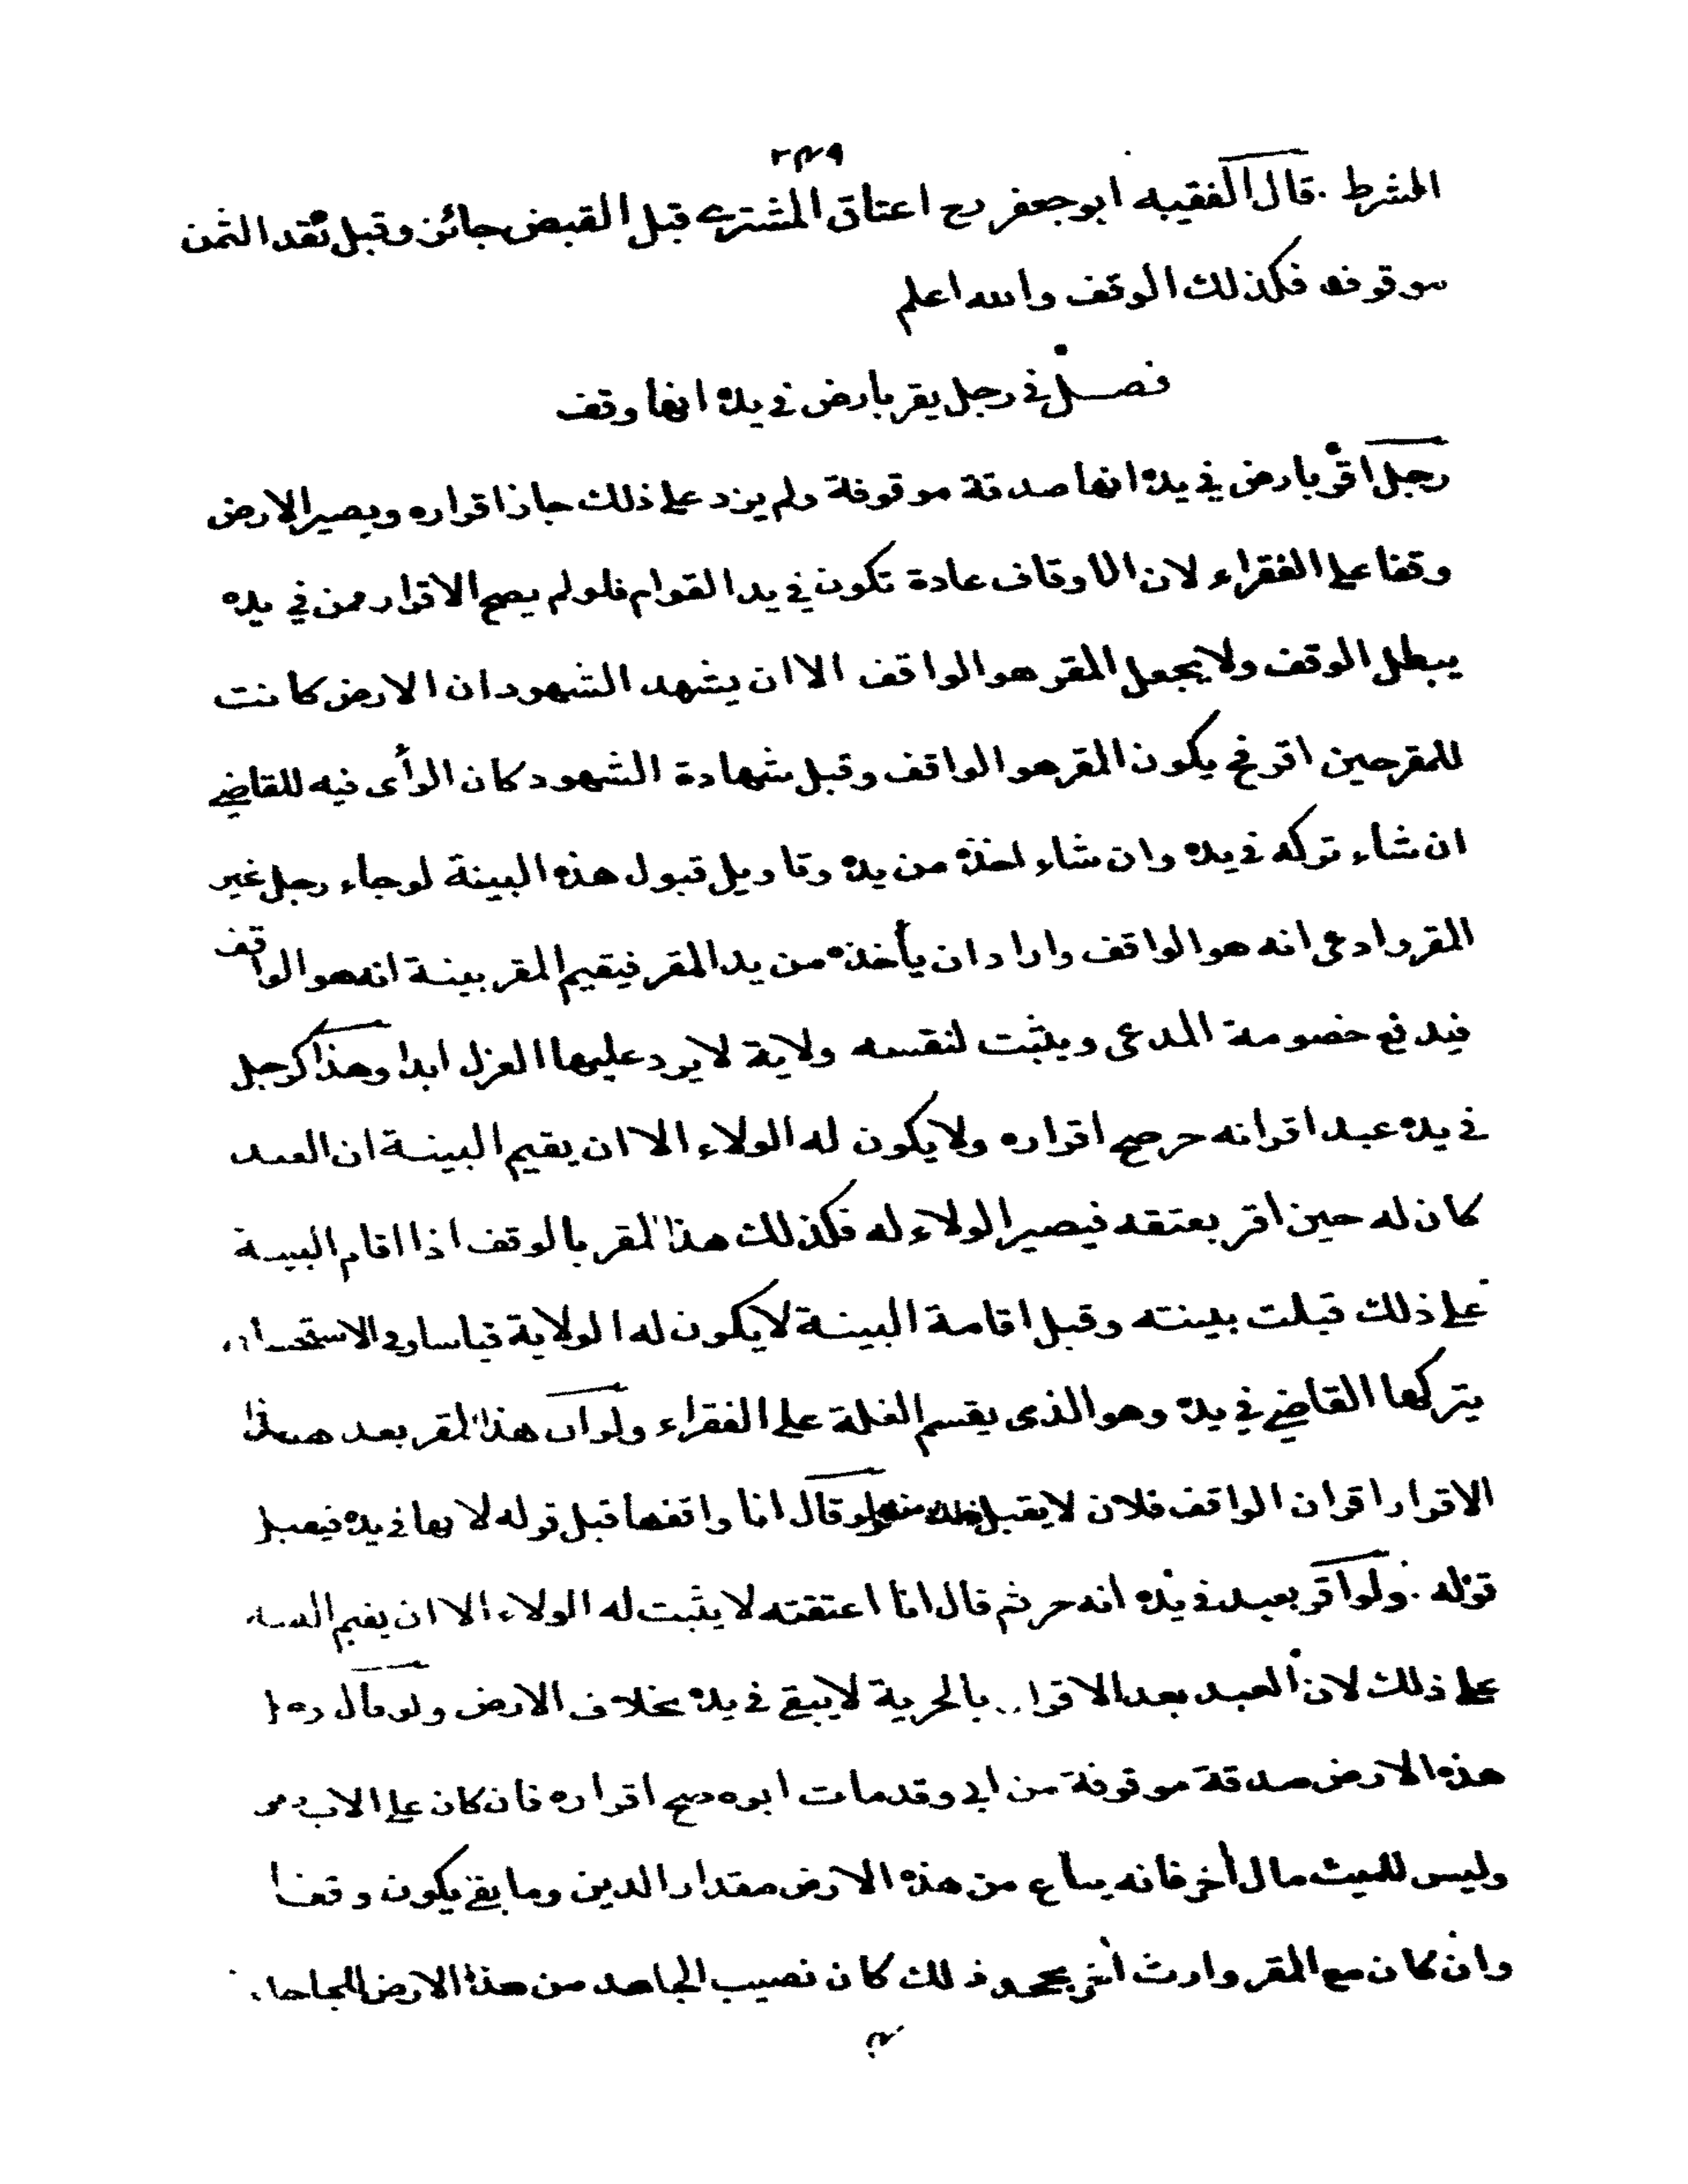 ٢٤٩
الشرط . قال الفقيه ابو جعفر رح اعتاق المشتري قبل القبض جائز وقبل نقد الثمن
موقوفه فكذلك الوقف والله اعلم
فصل في رجل يقر بارض في يده انها وقف
رجل اقر بارض في يده انها صدقة موقوفة ولم يزد على ذلك جاز اقراره ويصير الارض
وقفا على الفقراء لان الاوقاف عادة تكون في يد القوام فلو لم يصح الاقرار ممن في يده
يبطل الوقف ولا يجعل المقر هو الواقف الا ان يشهد الشهود ان الارض كانت
للمقر حين اقر فح يكون المقر هو الواقف وقبل شهادة الشهود كان الرأى فيه للقاضي
ان شاء تركه في يده وان شاء اخذه من يده وتاويل قبول هذه البينة لو جاء رجل غير
المقر وادعى انه هو الواقف واراد ان يأخذه من يد المقر فيقيم المقر بينة انه هو الواقف
فيدفع خصومة المدعى ويثبت لنفسه ولاية لا يرد عليها العزل ابدا وهذا كرجل
في يده عبد اقر انه حر صح اقراره ولا يكون له الولاء الا ان يقيم البينة ان العبد
كان له حين اقر بعتقه فيصير الولاء له فكذلك هذا المقر بالوقف اذا اقام البينة
على ذلك قبلت بينته وقبل اقامة البينة لا يكون له الولاية قياسا وفي الاستحسان
يتركها القاضي في يده وهو الذى يقسم الغلة على الفقراء ولو ان هذا المقر بعد هذا
الاقرار اقر ان الواقف فلان لا يقبل ذلك منه ولو قال انا واقفها قبل قوله لانها في يده فيقبل
قوله . ولو اقر بعبد في يده انه حر ثم قال انا اعتقته لا يثبت له الولاء الا ان يقيم البينة
على ذلك لان العبد بعد الاقرار بالحرية لا يبقى في يده بخلاف الارض ولو قال رجل
هذه الارض صدقة موقوفة من ابي وقد مات ابوه صح اقراره فان كان على الاب دين
وليس للميت مال أخر فانه يباع من هذه الارض مقدار الدين وما بقي يكون وقفا
وان كان مع المقر وارث أخر يجحد ذلك كان نصيب الجاحد من هذه الارض للجاحد